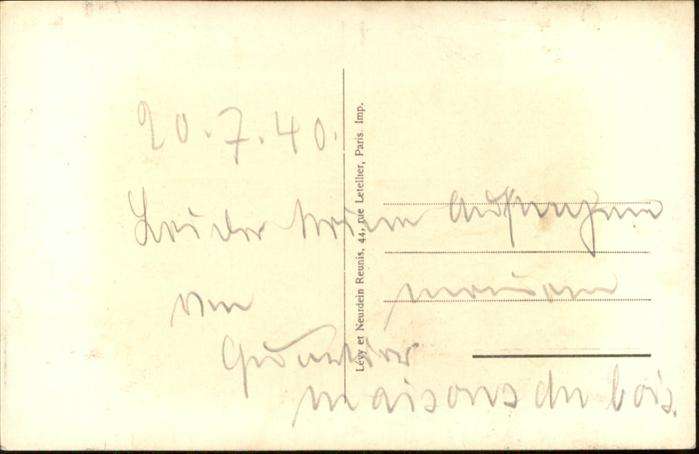 20.7.40.
Leider keine Aufnahme
von meinem
Quartier
maisons du bois.
Lévy et Neurdein Reunis, 44, rue Letellier, Paris. Imp.